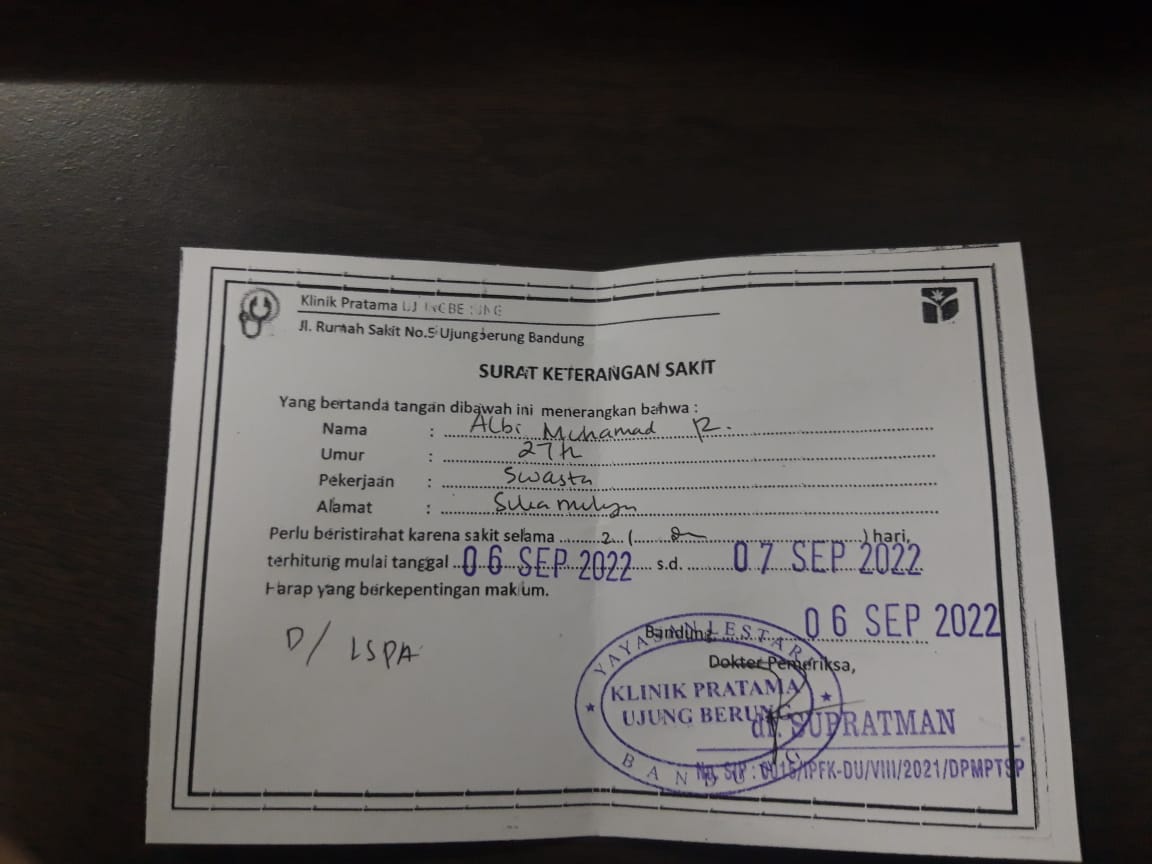 Klinik Pratama UJUNGBERUNG
Jl. Rumah Sakit No.5 Ujungberung Bandung
SURAT KETERANGAN SAKIT
Yang bertanda tangan dibawah ini menerangkan bahwa :
Nama : Albi Muhamad R.
Umur : 27 th
Pekerjaan : Swasta
Alamat : Sukamulya
Perlu beristirahat karena sakit selama 2 ( ) hari,
terhitung mulai tanggal 06 SEP 2022 s.d. 07 SEP 2022
Harap yang berkepentingan maklum.
D/ ISPA
Bandung, 06 SEP 2022
Dokter Pemeriksa,
YAYASAN LESTARI
KLINIK PRATAMA
UJUNG BERUNG
BANDUNG
dr. SUPRATMAN
No. SIP : 0015/IPFK-DU/VIII/2021/DPMPTSP